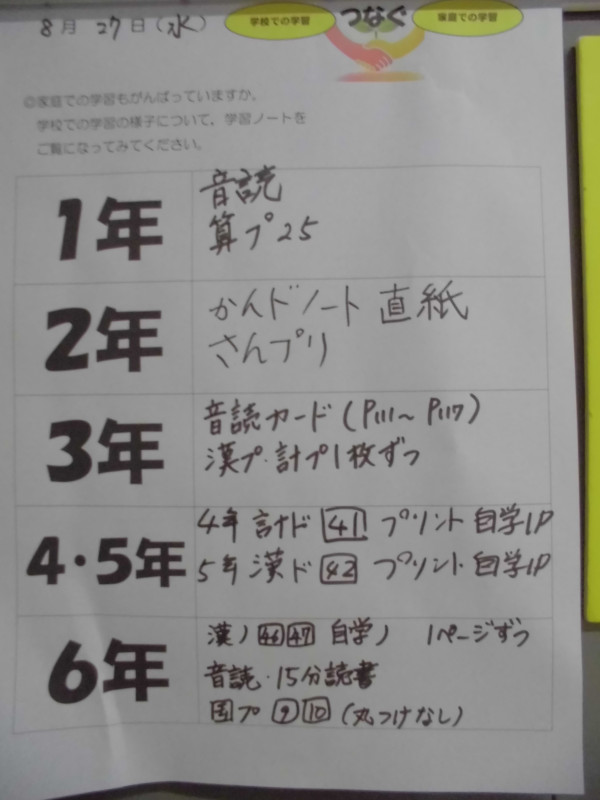 8月 27日(水)
学校での学習
つなぐ
家庭での学習
◎家庭での学習もがんばっていますか。
学校での学習の様子について、学習ノートを
ご覧になってみてください。
1年
音読
算プ25
2年
かんドノート 直紙
さんプリ
3年
音読カード(P111～P117)
漢プ・計プ1枚ずつ
4・5年
4年 計ド 41 プリント 自学1P
5年 漢ド 42 プリント 自学1P
6年
漢ノ 46 47 自学ノ 1ページずつ
音読・15分読書
国プ 9 10 (丸つけなし)